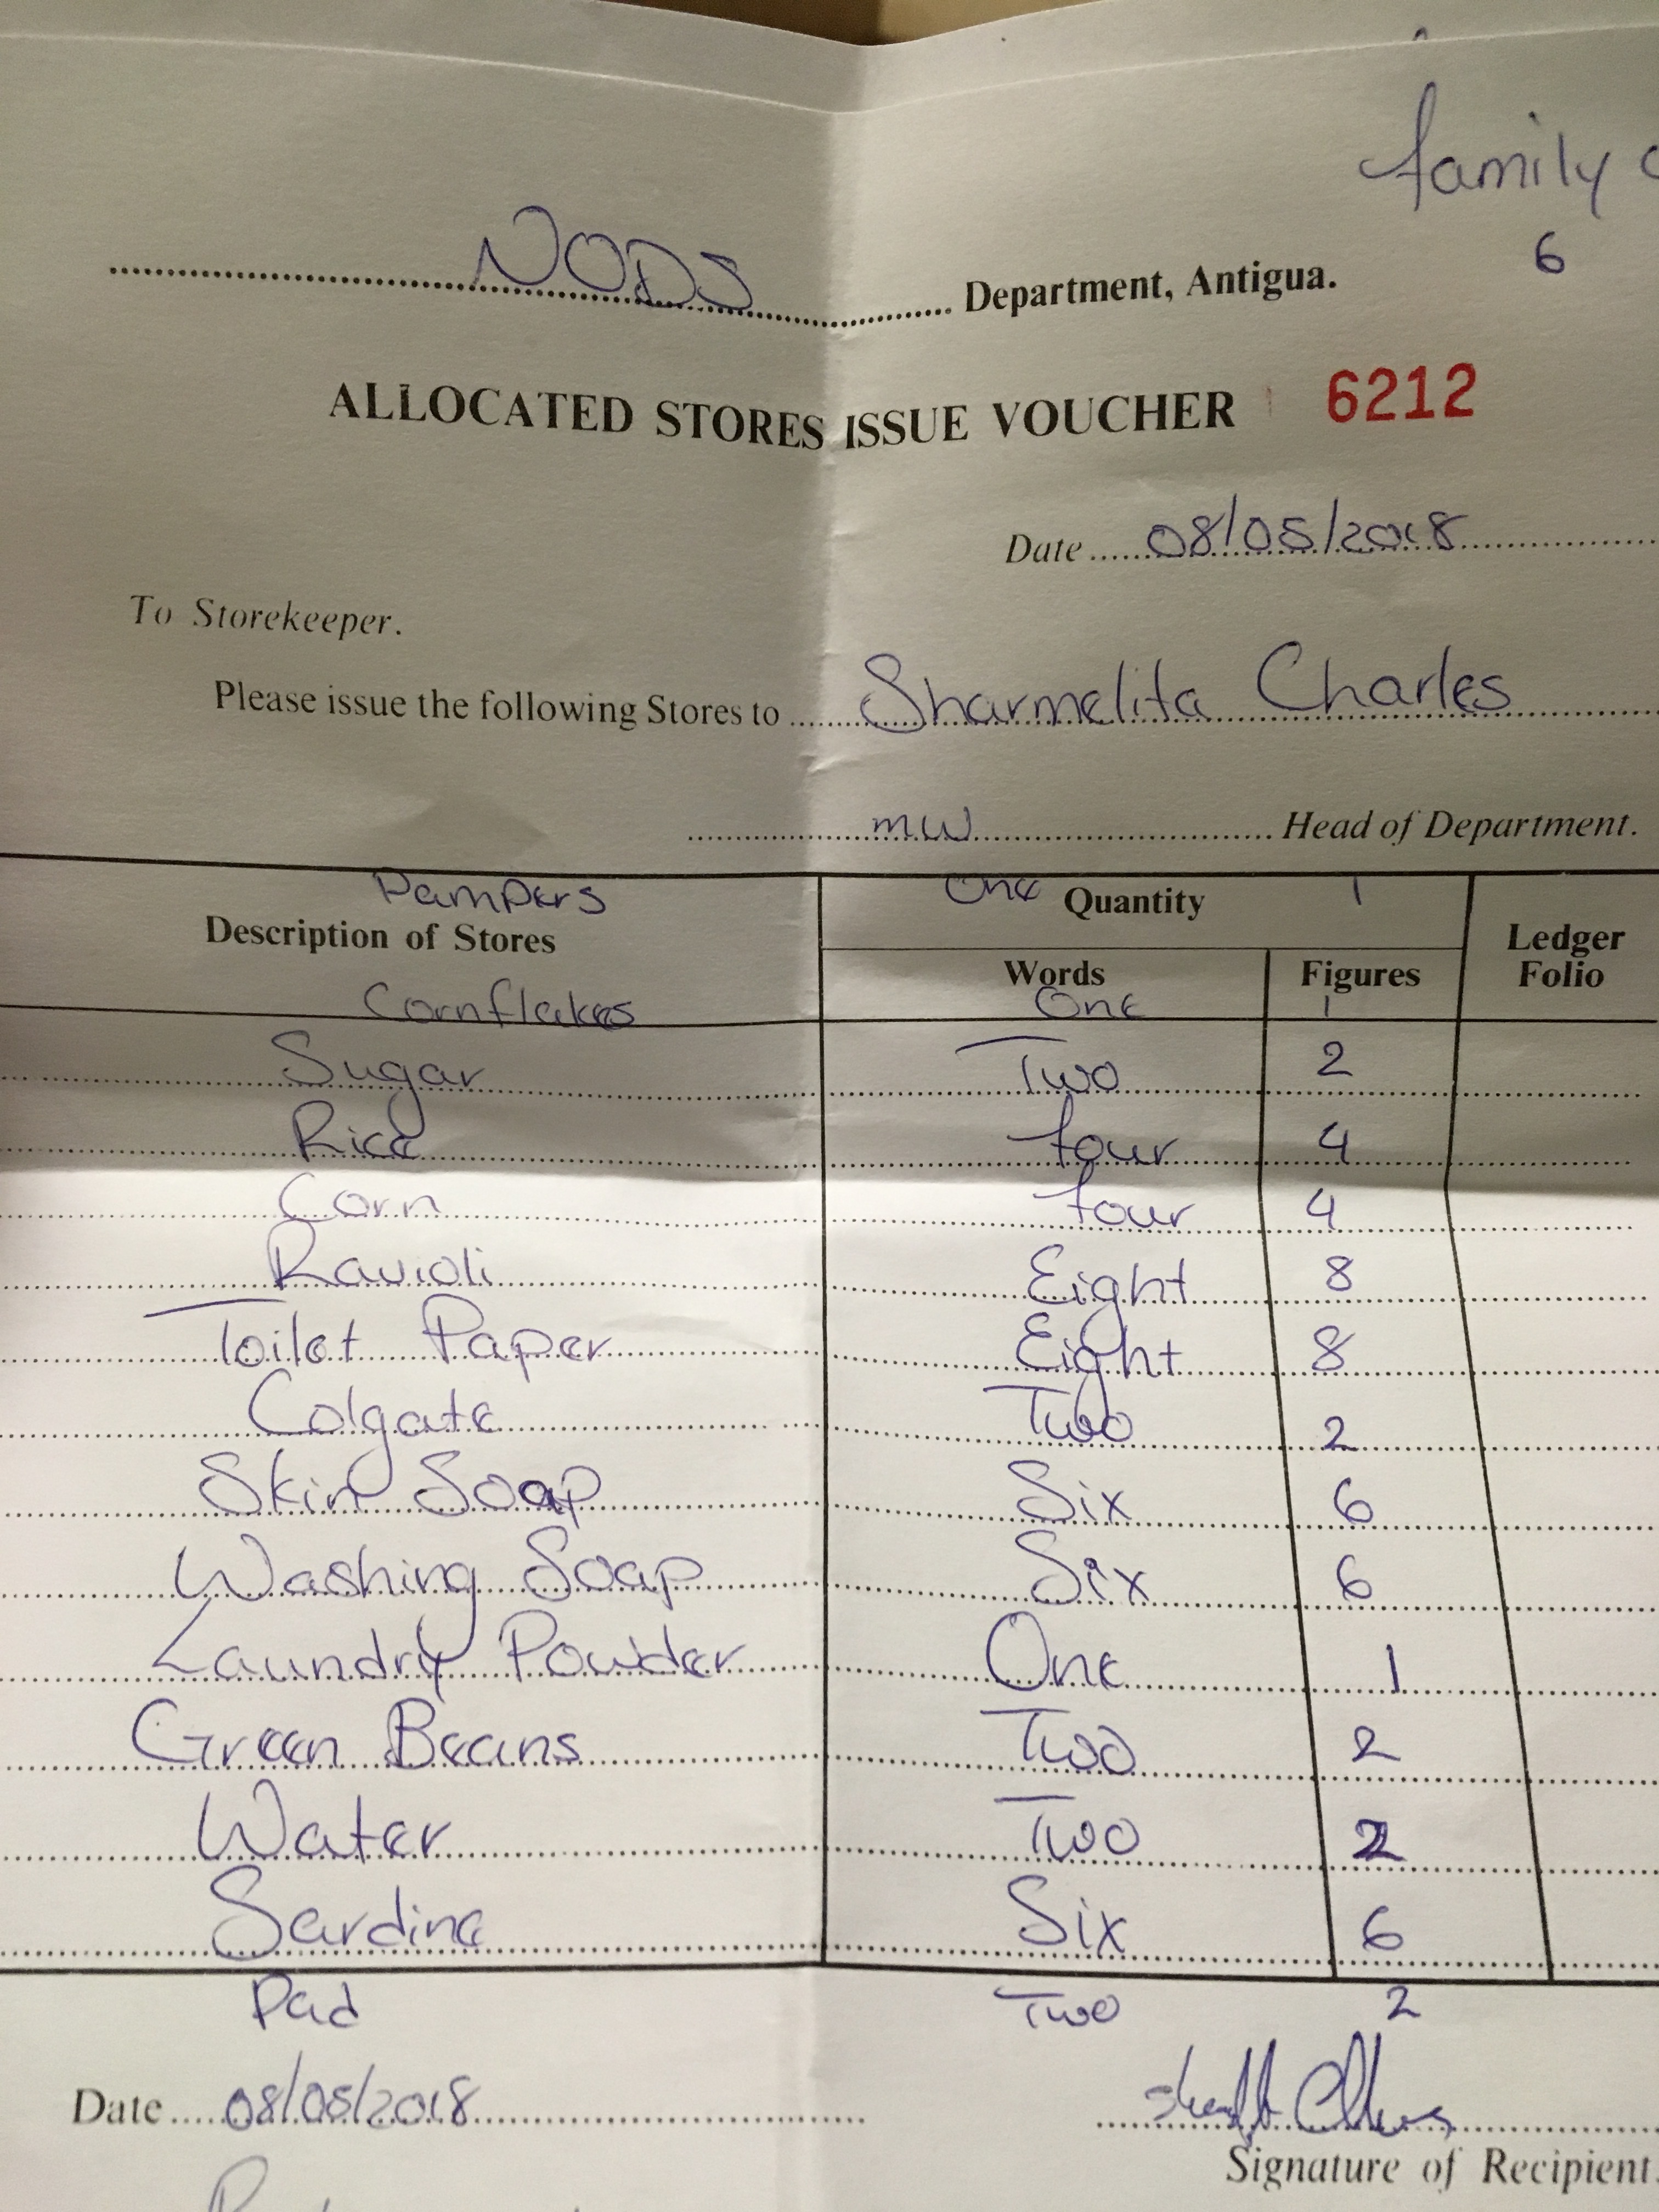 family
6
NODS Department, Antigua.
ALLOCATED STORES ISSUE VOUCHER 6212
Date 08/05/2018
To Storekeeper.
Please issue the following Stores to Sharmelita Charles
mw Head of Department.
Pampers One 1
Description of Stores Quantity Ledger Folio
Words Figures
Cornflakes One 1
Sugar Two 2
Rice four 4
Corn four 4
Ravioli Eight 8
Toilet Paper Eight 8
Colgate Two 2
Skin Soap Six 6
Washing Soap Six 6
Laundry Powder One 1
Green Beans Two 2
Water Two 2
Sardine Six 6
Pad Two 2
Date 08/05/2018
Signature of Recipient.